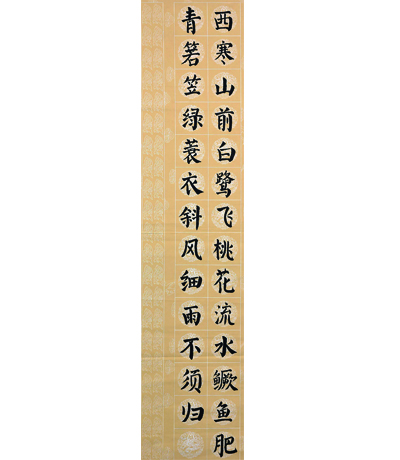 西寒山前白鹭飞桃花流水鳜鱼肥
青箬笠绿蓑衣斜风细雨不须归